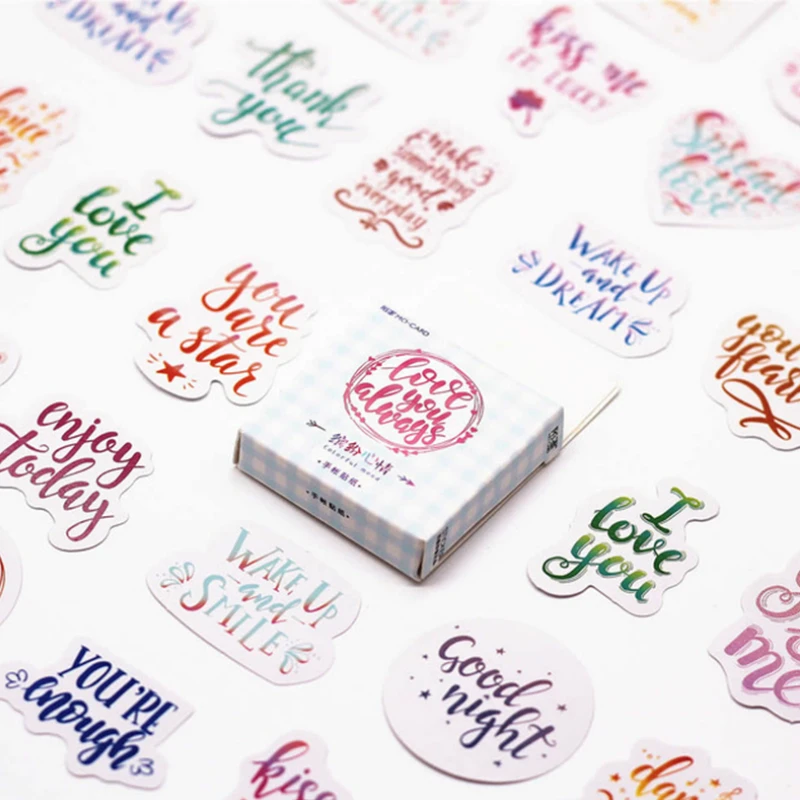 WAKE UP
and
DREAM
thank
you
kiss me
SMILE
dance
make
something
good
everyday
Spread
love
I
love
you
WAKE UP
and
DREAM
you
are
a star
your
fear
MO·CARD
love
you
always
缤纷心情
Colorful mood
·手帐贴纸·
·手帐贴纸·
enjoy
today
I
love
you
WAKE UP
and
SMILE
me
YOU'RE
enough
Good
night
kiss
dan